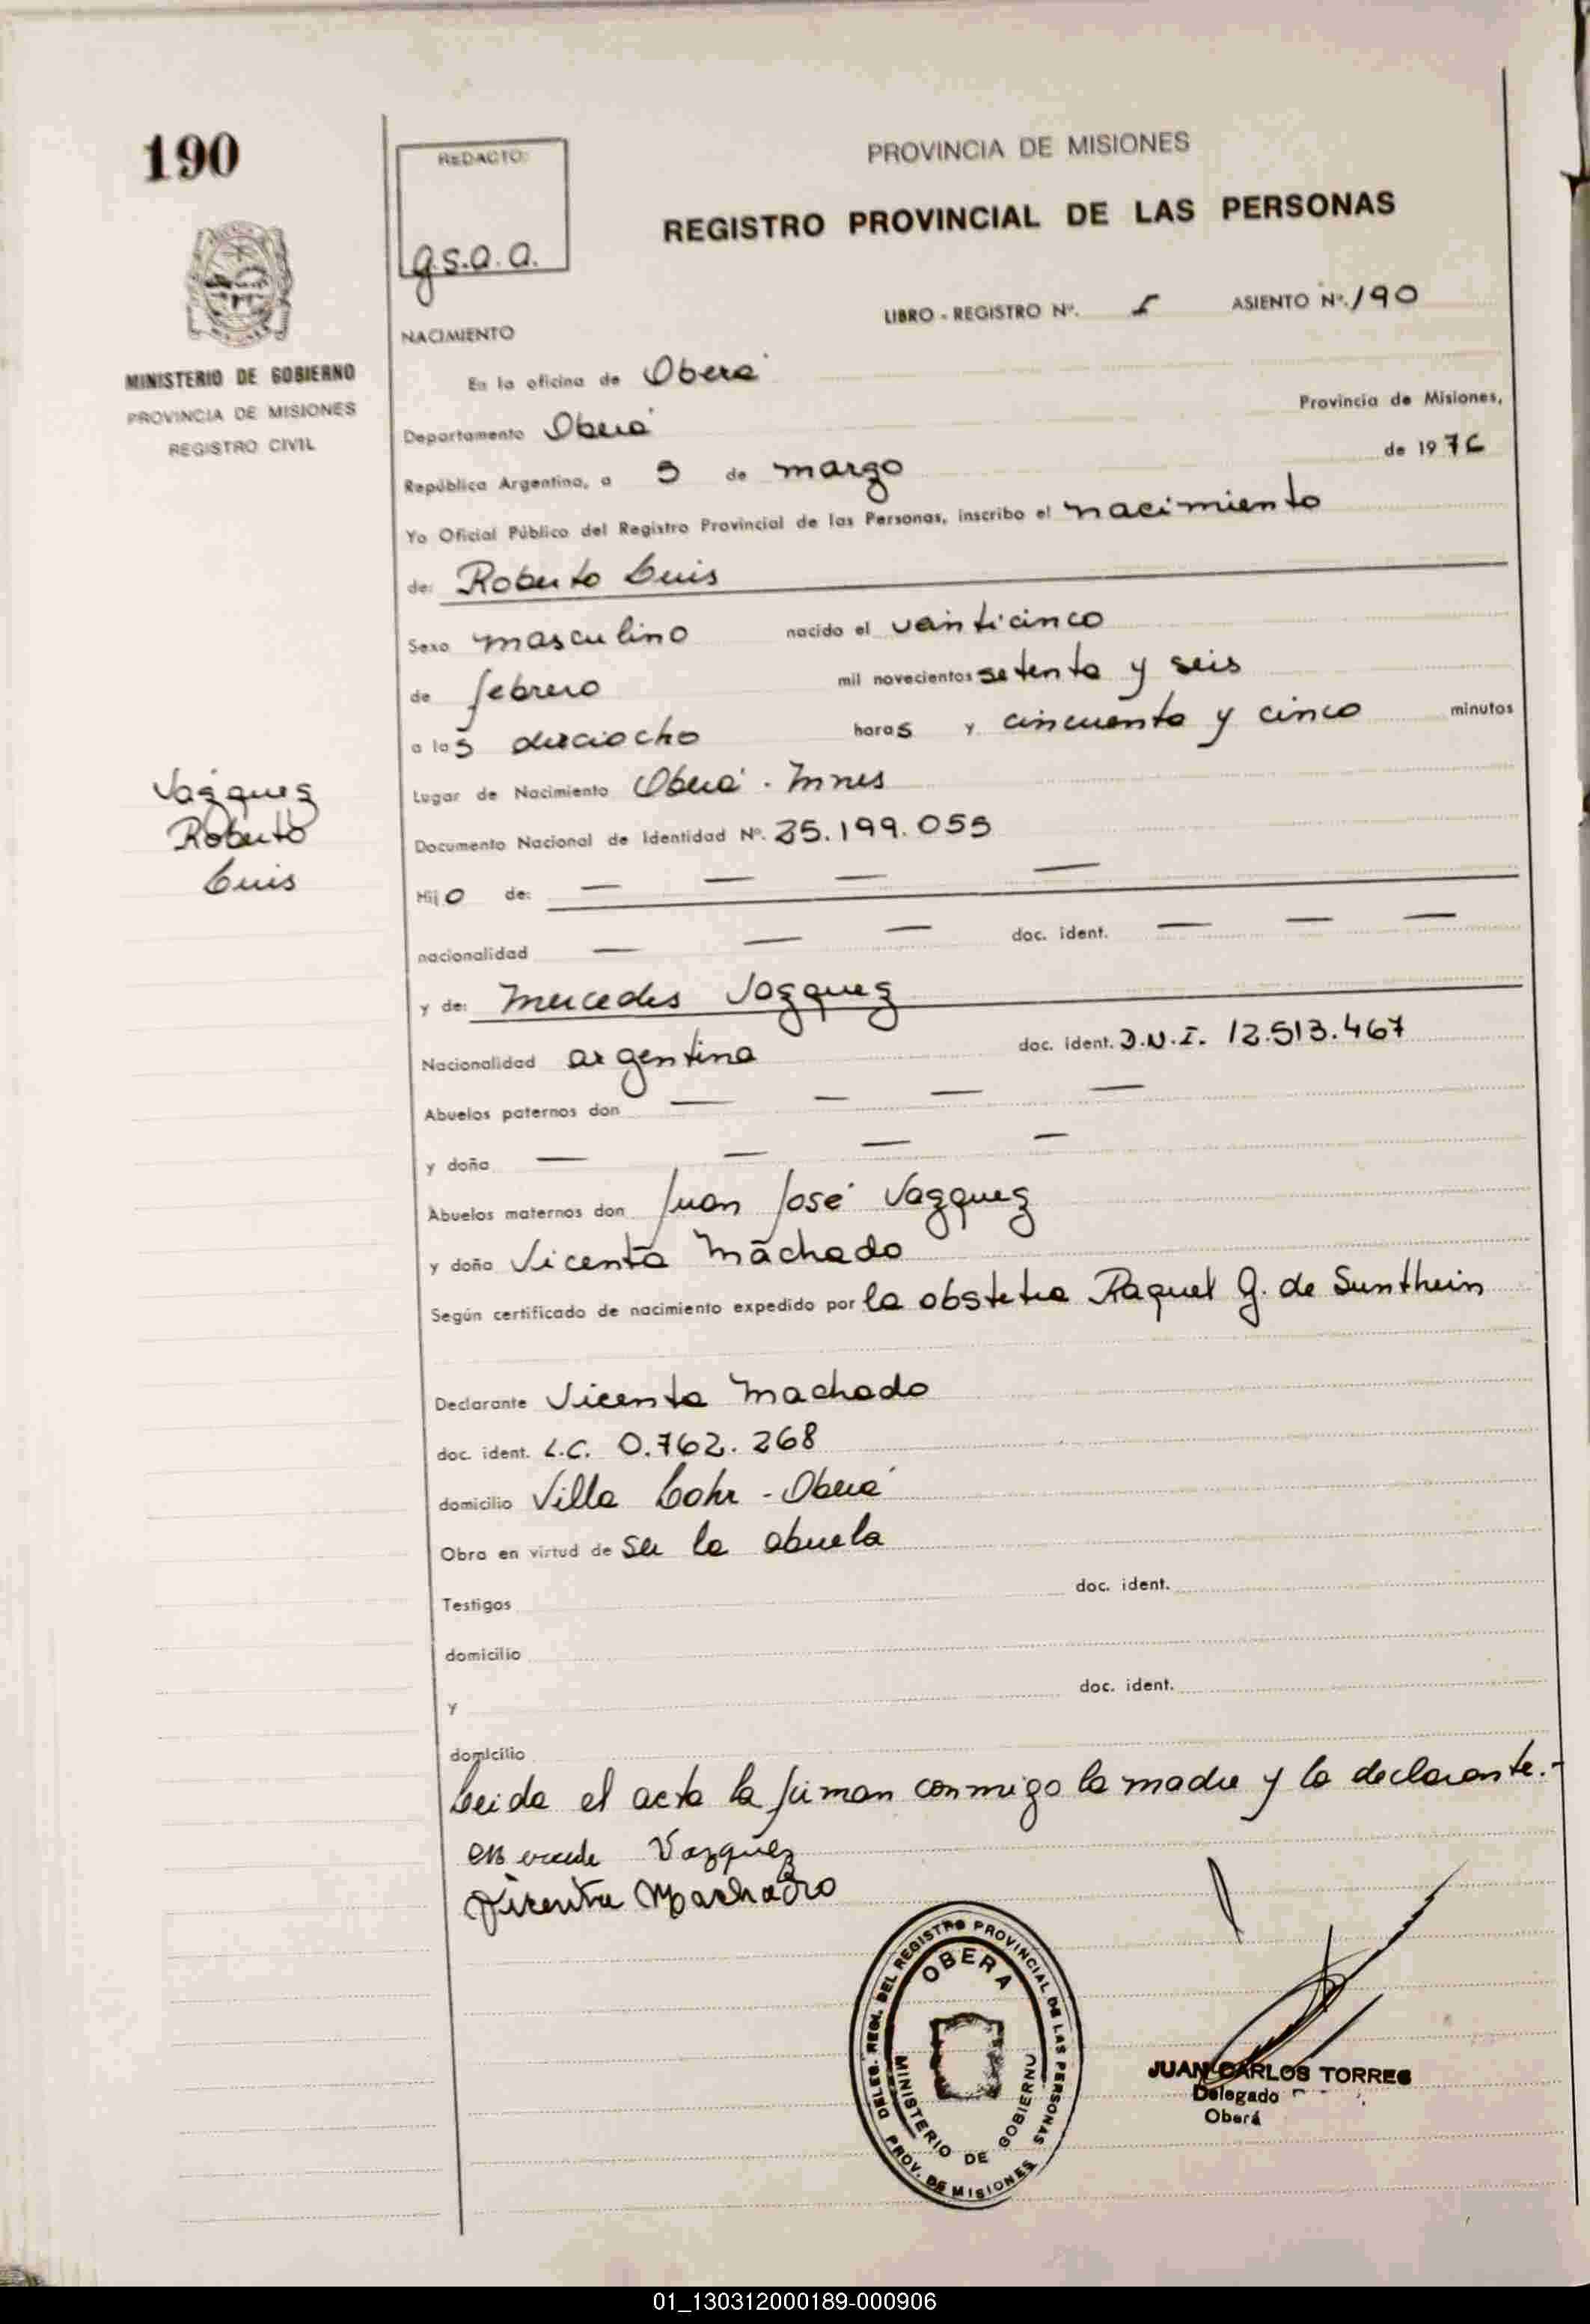 190
REDACTO:
g.s.a.a.
PROVINCIA DE MISIONES
REGISTRO PROVINCIAL DE LAS PERSONAS
LIBRO - REGISTRO Nº. I ASIENTO Nº. 190
MINISTERIO DE GOBIERNO
PROVINCIA DE MISIONES
REGISTRO CIVIL
NACIMIENTO
En la oficina de Oberá
Provincia de Misiones,
Departamento Oberá
de 1976
República Argentina, a 5 de marzo
Yo Oficial Público del Registro Provincial de las Personas, inscribo el nacimiento
de: Roberto Luis
Sexo masculino nacido el veinticinco
de febrero mil novecientos setenta y seis
a las dieciocho horas y cincuenta y cinco minutos
Vazquez
Roberto
Luis
Lugar de Nacimiento Oberá - Mnes
Documento Nacional de Identidad Nº. 25.199.055
Hijo de: — — — —
nacionalidad — — — doc. ident. — — —
y de: Mercedes Vazquez
Nacionalidad argentina doc. ident. D.N.I. 12.513.467
Abuelos paternos don — — — —
y doña — — — —
Abuelos maternos don Juan José Vazquez
y doña Vicenta Machado
Según certificado de nacimiento expedido por la obstetra Raquel G. de Sunthein
Declarante Vicenta Machado
doc. ident. L.C. 0.762.268
domicilio Villa Lohr - Oberá
Obra en virtud de ser la abuela
Testigos doc. ident.
domicilio
y doc. ident.
domicilio
Leida el acta la firman conmigo la madre y la declarante.-
Vazquez
Vicenta Machado
DELEG. REGL. DEL REGISTRO PROVINCIAL DE LAS PERSONAS
OBERA
MINISTERIO DE GOBIERNO
PROV. DE MISIONES
JUAN CARLOS TORRES
Delegado
Oberá
01_130312000189-000906